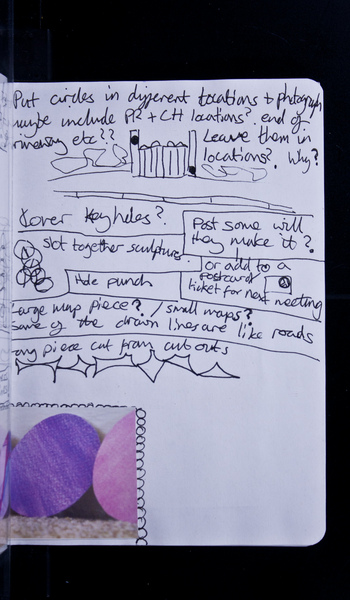 Put circles in different locations + photograph
maybe include PR + CH locations? end of
etc??
Leave them in
locations? Why?
Cover keyholes?
Post some will
they make it?
Slot together sculpture
or add to a
postcard
ticket for next meeting
Hole punch
Large map piece? / small maps?
some of the drawn lines are like roads
any piece cut from cut outs